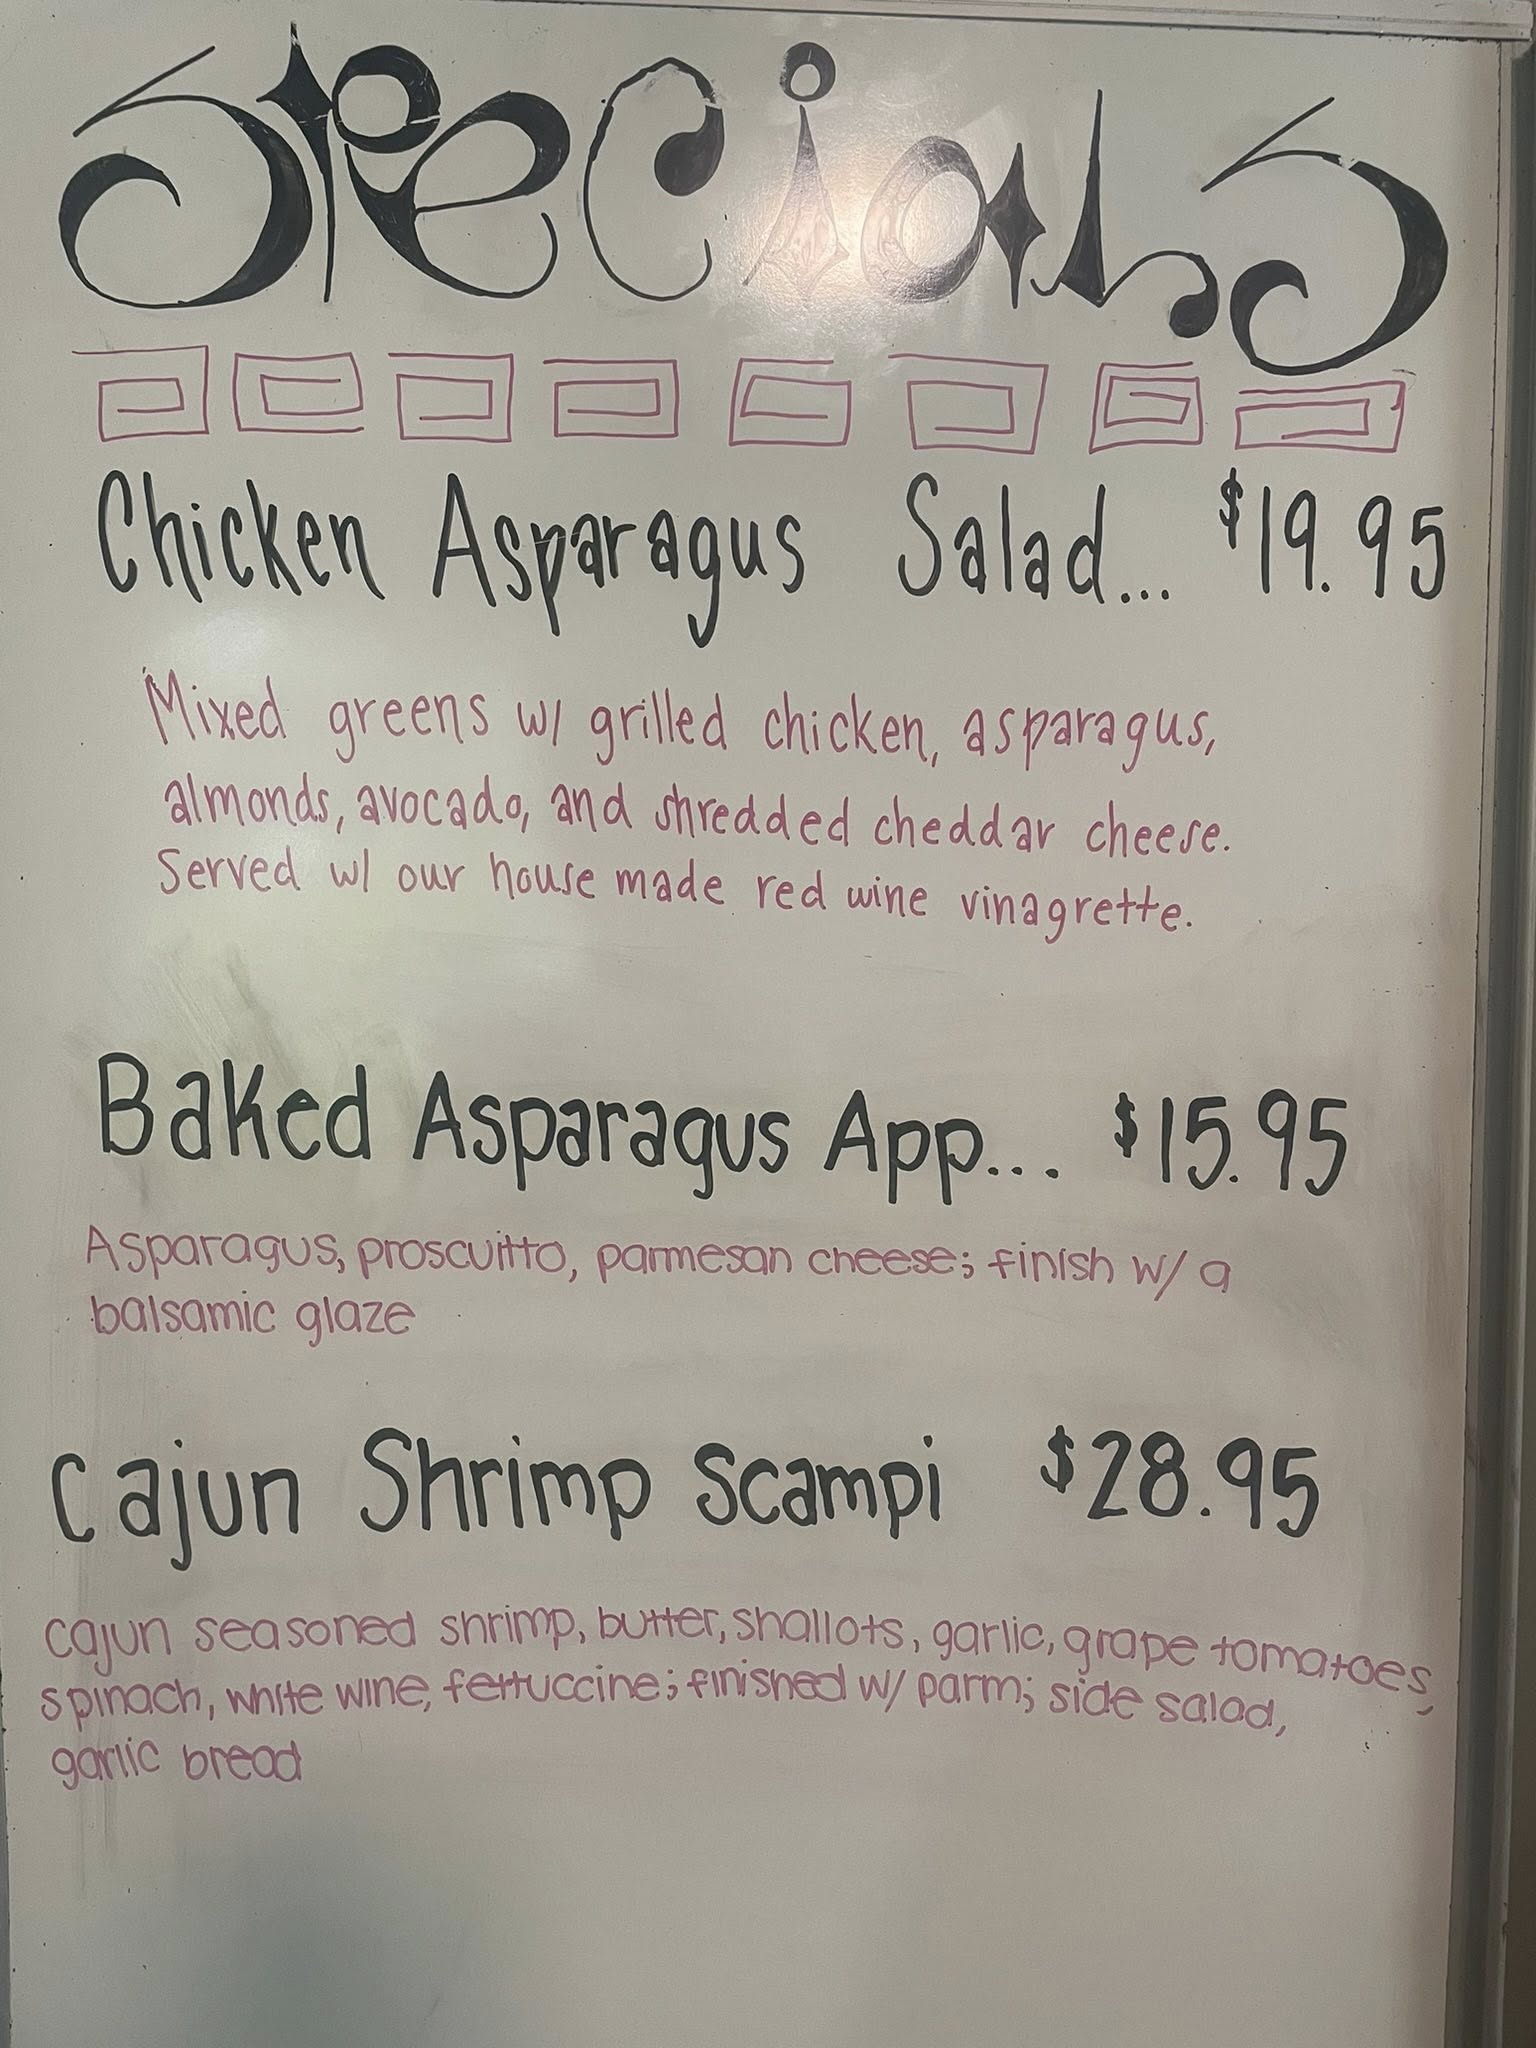 Specials
Chicken Asparagus Salad... $19.95
Mixed greens w/ grilled chicken, asparagus,
almonds, avocado, and shredded cheddar cheese.
Served w/ our house made red wine vinagrette.
Baked Asparagus App... $15.95
Asparagus, proscuitto, parmesan cheese; finish w/ a
balsamic glaze
Cajun Shrimp Scampi $28.95
cajun seasoned shrimp, butter, shallots, garlic, grape tomatoes,
spinach, white wine, fettuccine; finished w/ parm; side salad,
garlic bread